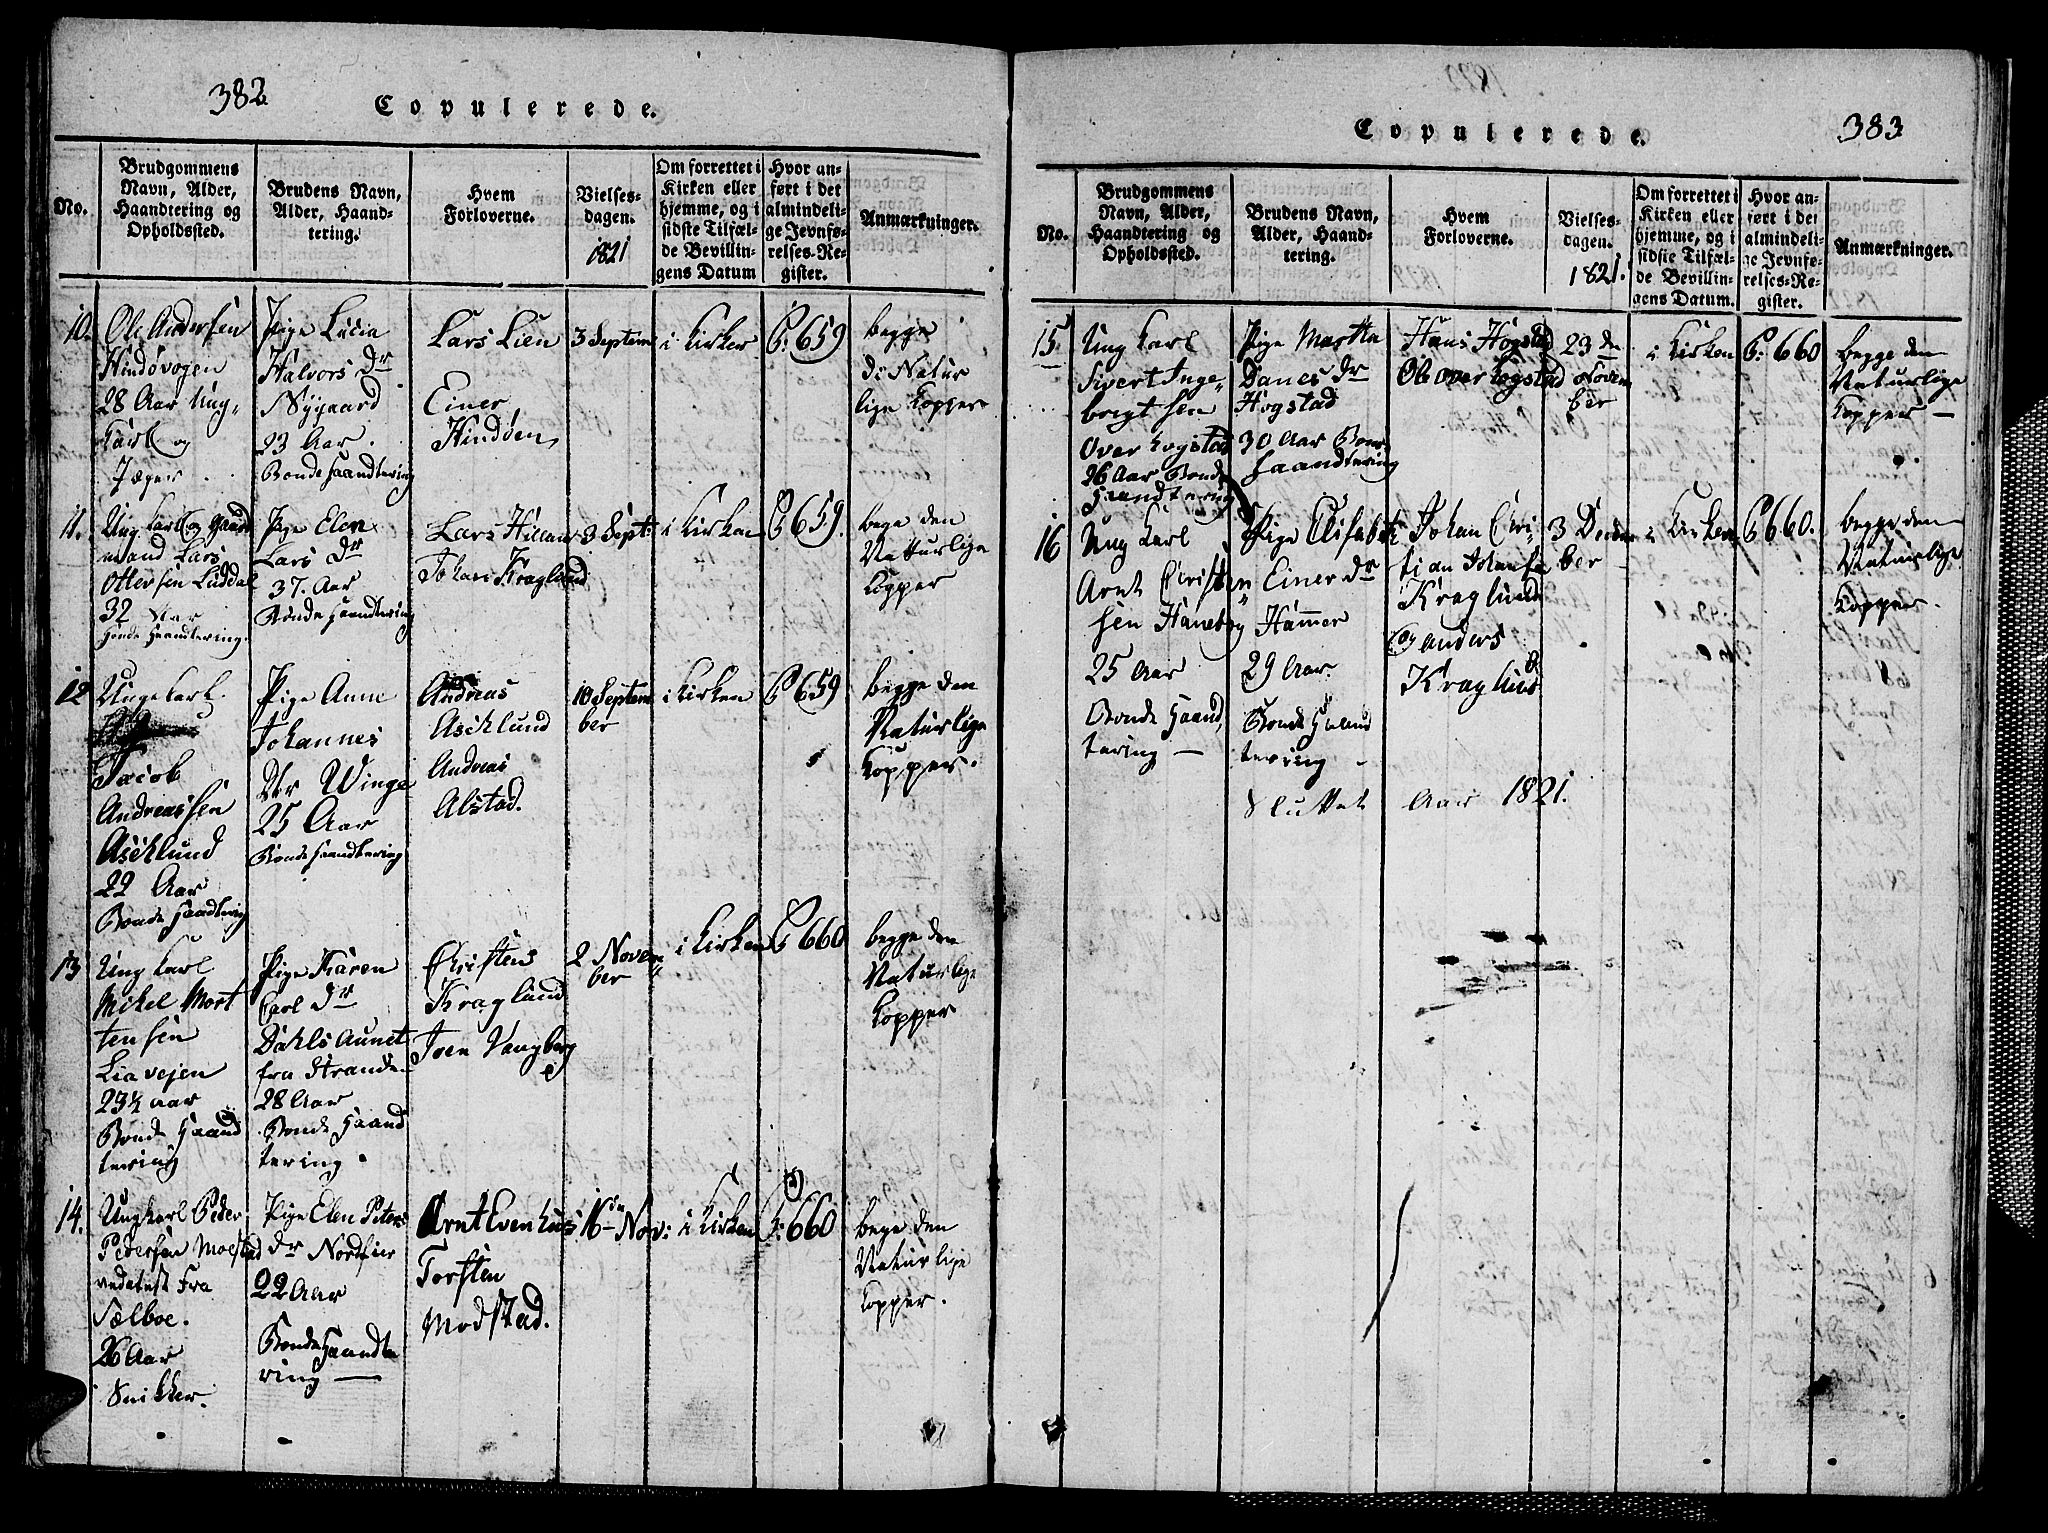 382
Copulerede.
No.
Brudgommens
Navn, Alder,
Haandtering og
Opholdssted.
Brudens Navn,
Alder, Haand-
tering.
Hvem
Forloverne.
Vielses-
dagen.
1821
Om forrettet i
Kirken eller
hjemme, og i
sidste Tilfæl-
de Bevillin-
gens Datum
Hvor an-
ført i det
almindeli-
ge Jevnfø-
relses-Re-
gister.
Anmærkninger.
10.
Ole Andersen
28 Aar Ung-
Karl og
Jæger.
Pige Lucia
Halvors Dr
Nygaard
23 Aar.
Bonde Haandtering
Lars Lien
Einer
Hindøen
3 Septem
i Kirken
659
begge
de Natur
lige Kopper
11.
Ung Karl og Gaard
mand Lars
Ottersen Luddal
32 Aar
Bonde Haandtering.
Pige Elen
Lars Dr
37. Aar
Bonde Haandtering
Lars
Johan Kraglund
3 Sept:
i Kirken
659.
bege den
Natturlige
Kopper
12
Unge Karl.
Jacob
Andreassen
Aschlund
22 Aar
Bonde Haandtering
Pige Anne
Johannes
Dtr Winge
25 Aar
Bonde Haandtering
Andreas
Aschlund
Andreas
Alstad.
10 Septem
ber
i Kirken
659
begge den
Naturlige
Kopper.
13
Ung Karl
Mikel Mort
tensen
Liavejen
23½ aar
Bonde Haand
tering
Pige Karen
Carl Dr
Dahls Aunet
fra Strande
28 Aar
Bonde Haand
tering.
Christens
Kraglund
Iven Vangberg
2 Novem
ber
i Kirken
660
begge den
Naturlige
Kopper
14.
Ung Karl Peder
Pedersen Moestad
fra
Sælboe.
26 Aar
Snikker.
Pige Elen Peters
dr Nordfier
22 Aar
Bonde Haandte
ring —
Arnt Evenhus
Torsten
Modstad.
16 de Nov:
i Kirken
660
bege den
Naturlige
Kopper.
383
Copulerede.
No.
Brudgommens
Navn, Alder,
Haandtering og
Opholdssted.
Brudens Navn,
Alder, Haand-
tering.
Hvem
Forloverne.
Vielses-
dagen.
1821.
Om forrettet i
Kirken eller
hjemme, og i
sidste Tilfæl-
de Bevillin-
gens Datum.
Hvor an-
ført i det
almindeli-
ge Jevnfø-
relses-Re-
gister.
Anmærkninger.
15
Ung Karl
Sivert Inge-
brigtsen
Over Hogstad
26 Aar Bonde
Haandtering
Pige Martha
Danes Dr
Hogstad
30 Aar Bonde
Haandtering
Hans Hogstad
Ole Over Hogstad
23 de
Novem
ber
i Kirken
660
begge den
Naturlige
Kopper —
16
Ung Karl
Arnt Christen
sen Haneb
25 Aar
Bonde Haand
tering —
Pige Elisabet
Einer dr
Hammer
29 Aar.
Bonde Haand
tering -
Johan Chri
tian
Kraglund
Og anders
Kraglund
3 Decem
ber
i Kirken
660.
begge den
Naturlige
Kopper.
Sluttet Aar 1821.